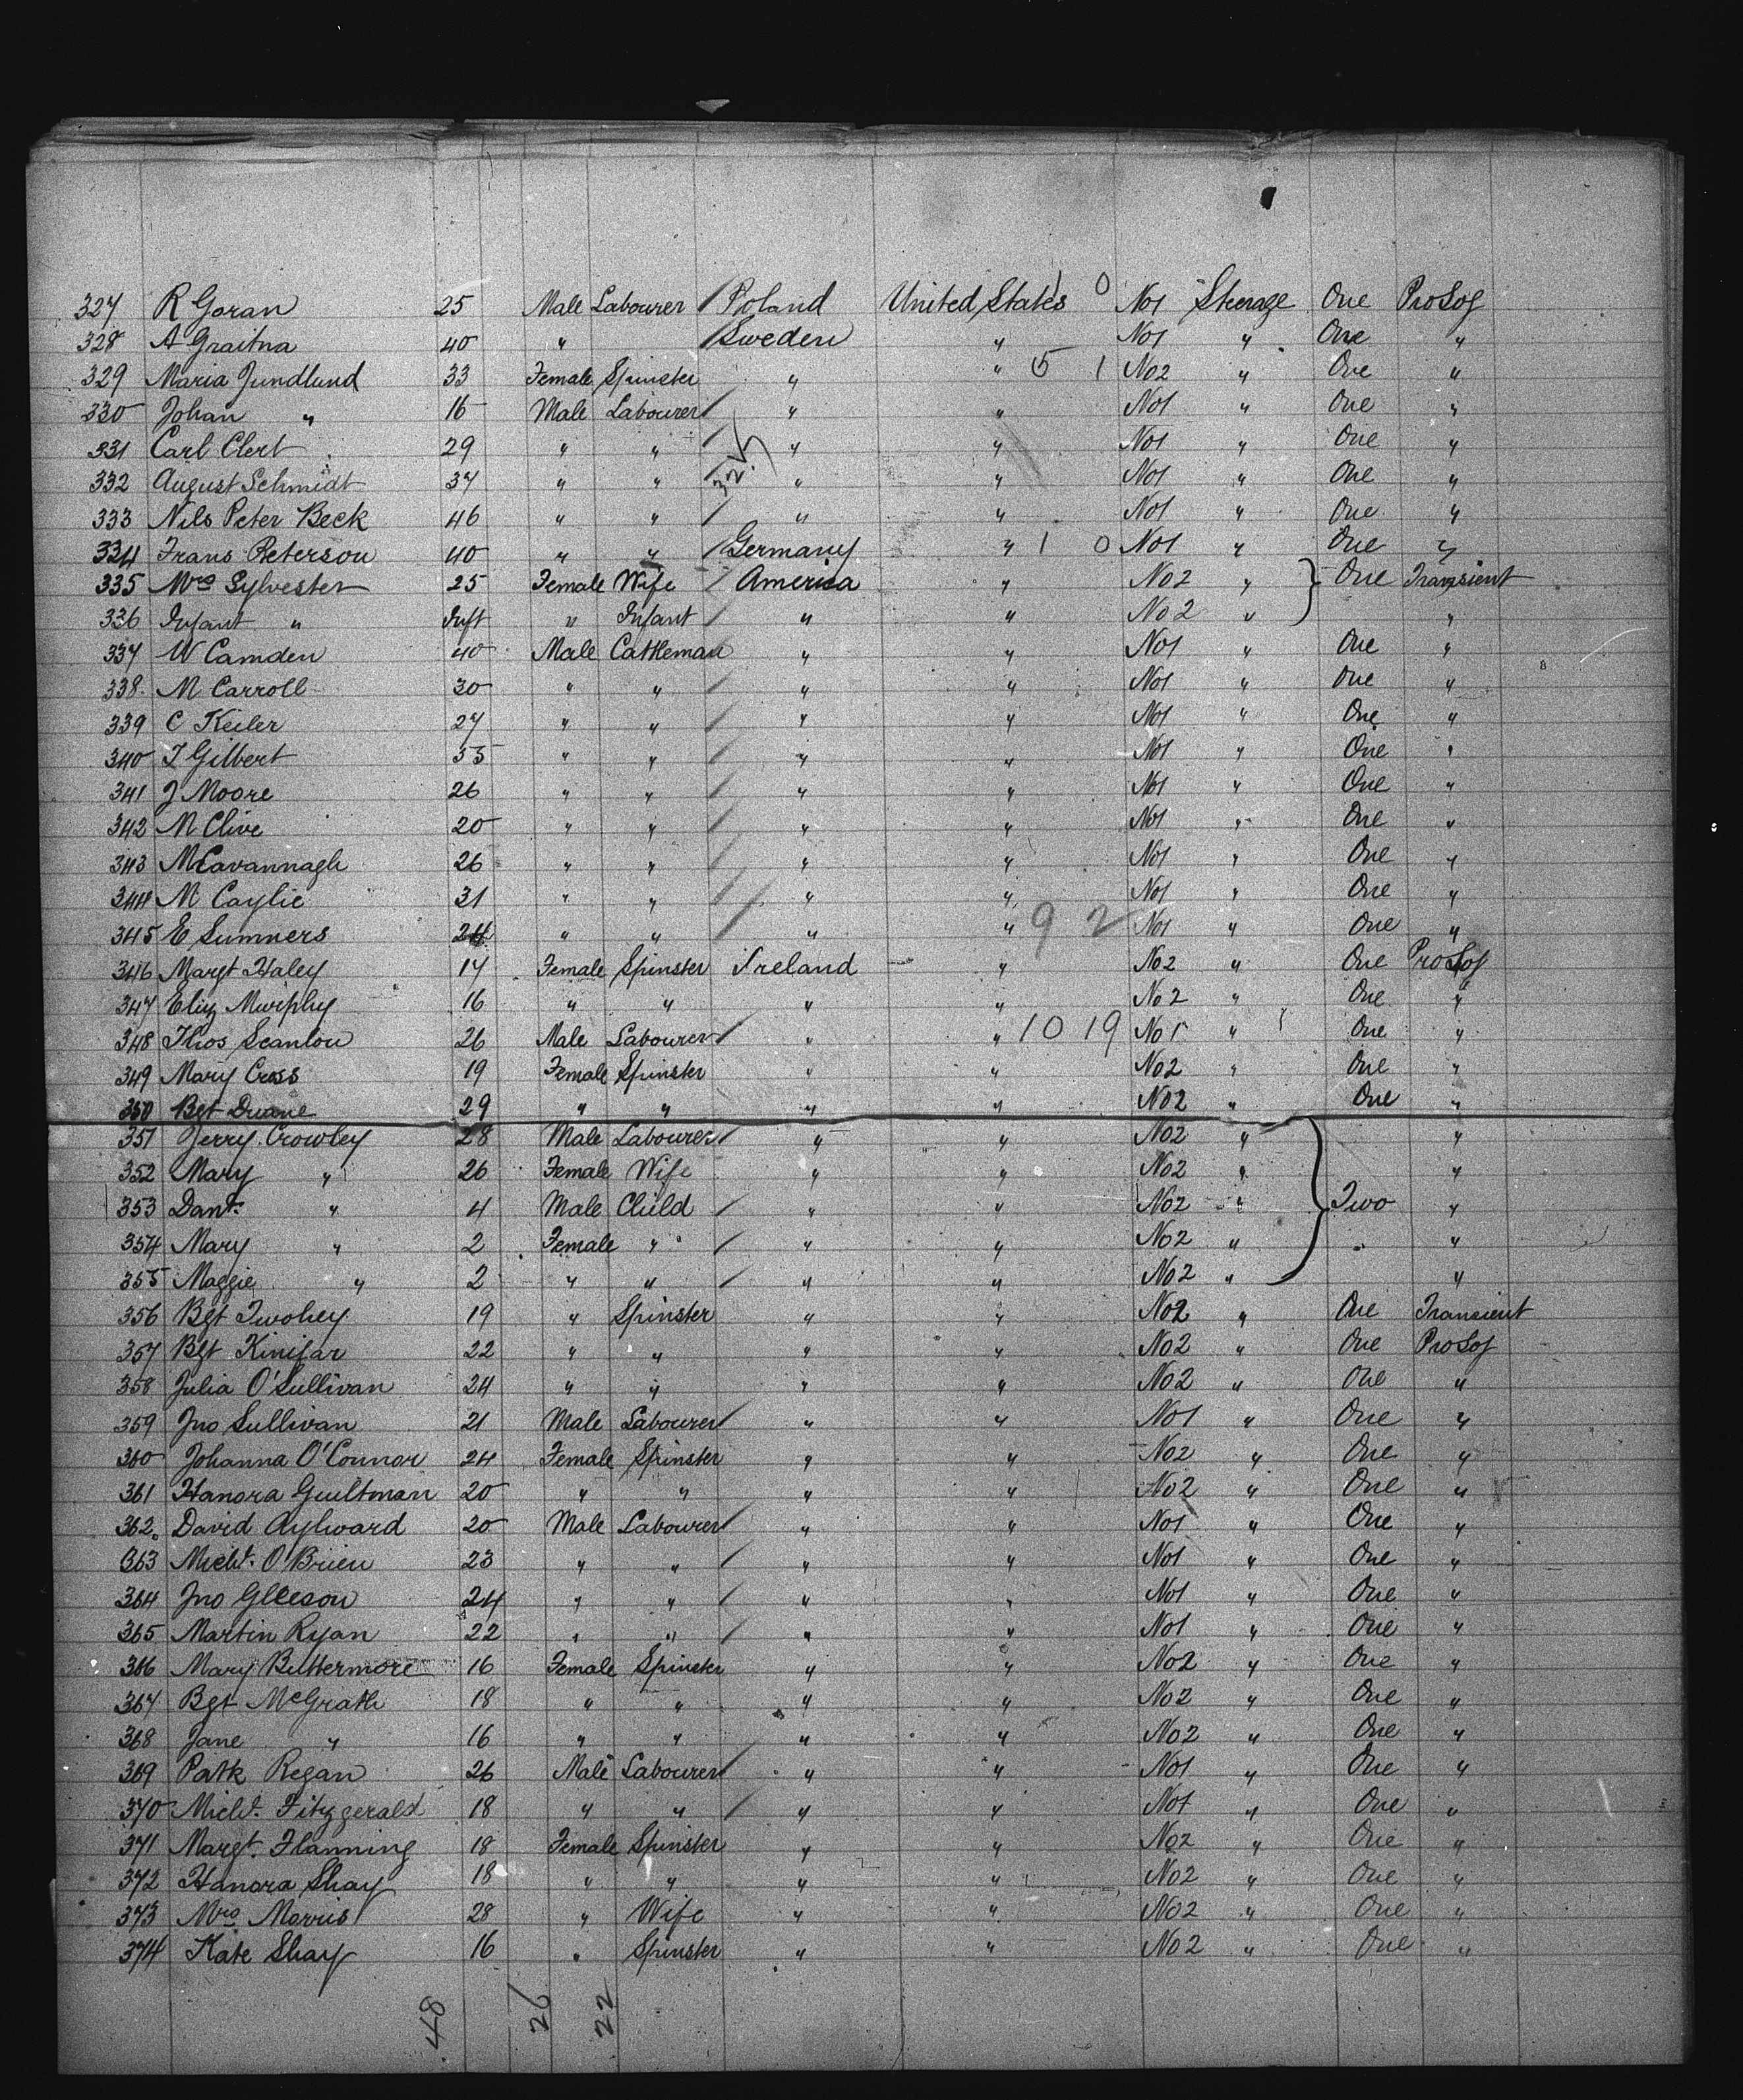 327 R Goran 25 Male Labourer Poland United States 1 0 No1 Steerage One Pro Soj
328 A Graitna 40 " Sweden " No1 " One "
329 Maria Jundlund 33 Female Spinster " " 5 1 No2 " One "
330 Johan " 16 Male Labourer " " No1 " One "
331 Carl Clert 29 " " " " No1 " One "
332 August Schmidt 37 " " " " No1 " One "
333 Nils Peter Beck 46 " " " " No1 " One "
334 Frans Peterson 40 " " Germany " 1 0 No1 " One "
335 Mrs Sylvester 25 Female Wife America " No2 " One Transient
336 Infant " Inft " Infant " " No2 " "
337 W Camden 40 Male Cattleman " " No1 " One "
338 M Carroll 30 " " " " No1 " One "
339 C Keiler 27 " " " " No1 " One "
340 T Gilbert 55 " " " " No1 " One "
341 J Moore 26 " " " " No1 " One "
342 M Clive 20 " " " " No1 " One "
343 M Cavannagh 26 " " " " No1 " One "
344 M Caylie 31 " " " " No1 " One "
345 E Sumners 24 " " " " 9 2 No1 " One "
346 Margt Haley 17 Female Spinster Ireland " No2 " One Pro Soj
347 Eliz Murphy 16 " " " " No2 " One "
348 Thos Scanlon 26 Male Labourer " " 10 19 No1 " One "
349 Mary Cross 19 Female Spinster " " No2 " One "
350 Bgt Duane 29 " " " " No2 " One "
351 Jerry Crowley 28 Male Labourer " " No2 " "
352 Mary " 26 Female Wife " " No2 " "
353 Danl. " 4 Male Child " " No2 " Two "
354 Mary " 2 Female " " " No2 " "
355 Maggie " 2 " " " " No2 " "
356 Bgt Twohey 19 " Spinster " " No2 " One Transient
357 Bgt Kinifar 22 " " " " No2 " One Pro Soj
358 Julia O'Sullivan 24 " " " " No2 " One "
359 Jno Sullivan 21 Male Labourer " " No1 " One "
360 Johanna O'Connor 24 Female Spinster " " No2 " One "
361 Hanora Guiltman 20 " " " " No2 " One "
362 David Aylward 20 Male Labourer " " No1 " One "
363 Michl. O'Brien 23 " " " " No1 " One "
364 Jno Gleeson 24 " " " " No1 " One "
365 Martin Ryan 22 " " " " No1 " One "
366 Mary Buttermore 16 Female Spinster " " No2 " One "
367 Bgt McGrath 18 " " " " No2 " One "
368 Jane " 16 " " " " No2 " One "
369 Patk Regan 26 Male Labourer " " No1 " One "
370 Michl. Fitzgerald 18 " " " " No1 " One "
371 Margt. Flanning 18 Female Spinster " " No2 " One "
372 Hanora Shay 18 " " " " No2 " One "
373 Mrs Morris 28 " Wife " " No2 " One "
374 Kate Shay 16 " Spinster " " No2 " One "
48 26 22